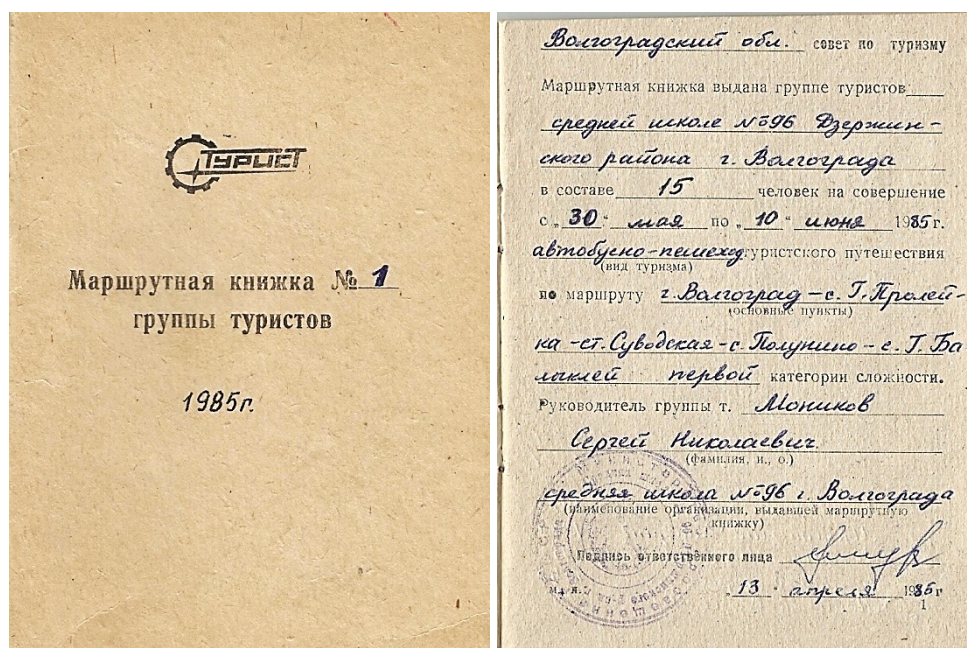 ТУРИСТ
Маршрутная книжка № 1
группы туристов
1985г.
Волгоградский обл. совет по туризму
Маршрутная книжка выдана группе туристов
средней школе №96 Дзержин-
ского района г. Волгограда
в составе 15 человек на совершение
с „30“ мая по „10“ июня 1985 г.
автобусно-пешеход. туристского путешествия
(вид туризма)
по маршруту г. Волгоград – с. Г. Пролей-
(основные пункты)
ка – ст. Суводская – с. Полунино – с. Г. Ба
лыклей первой категории сложности.
Руководитель группы т. Моников
Сергей Николаевич
(фамилия, и., о.)
средняя школа №96 г. Волгограда
(наименование организации, выдавшей маршрутную
книжку)
Подпись ответственного лица
„13“ апреля 1985 г
1